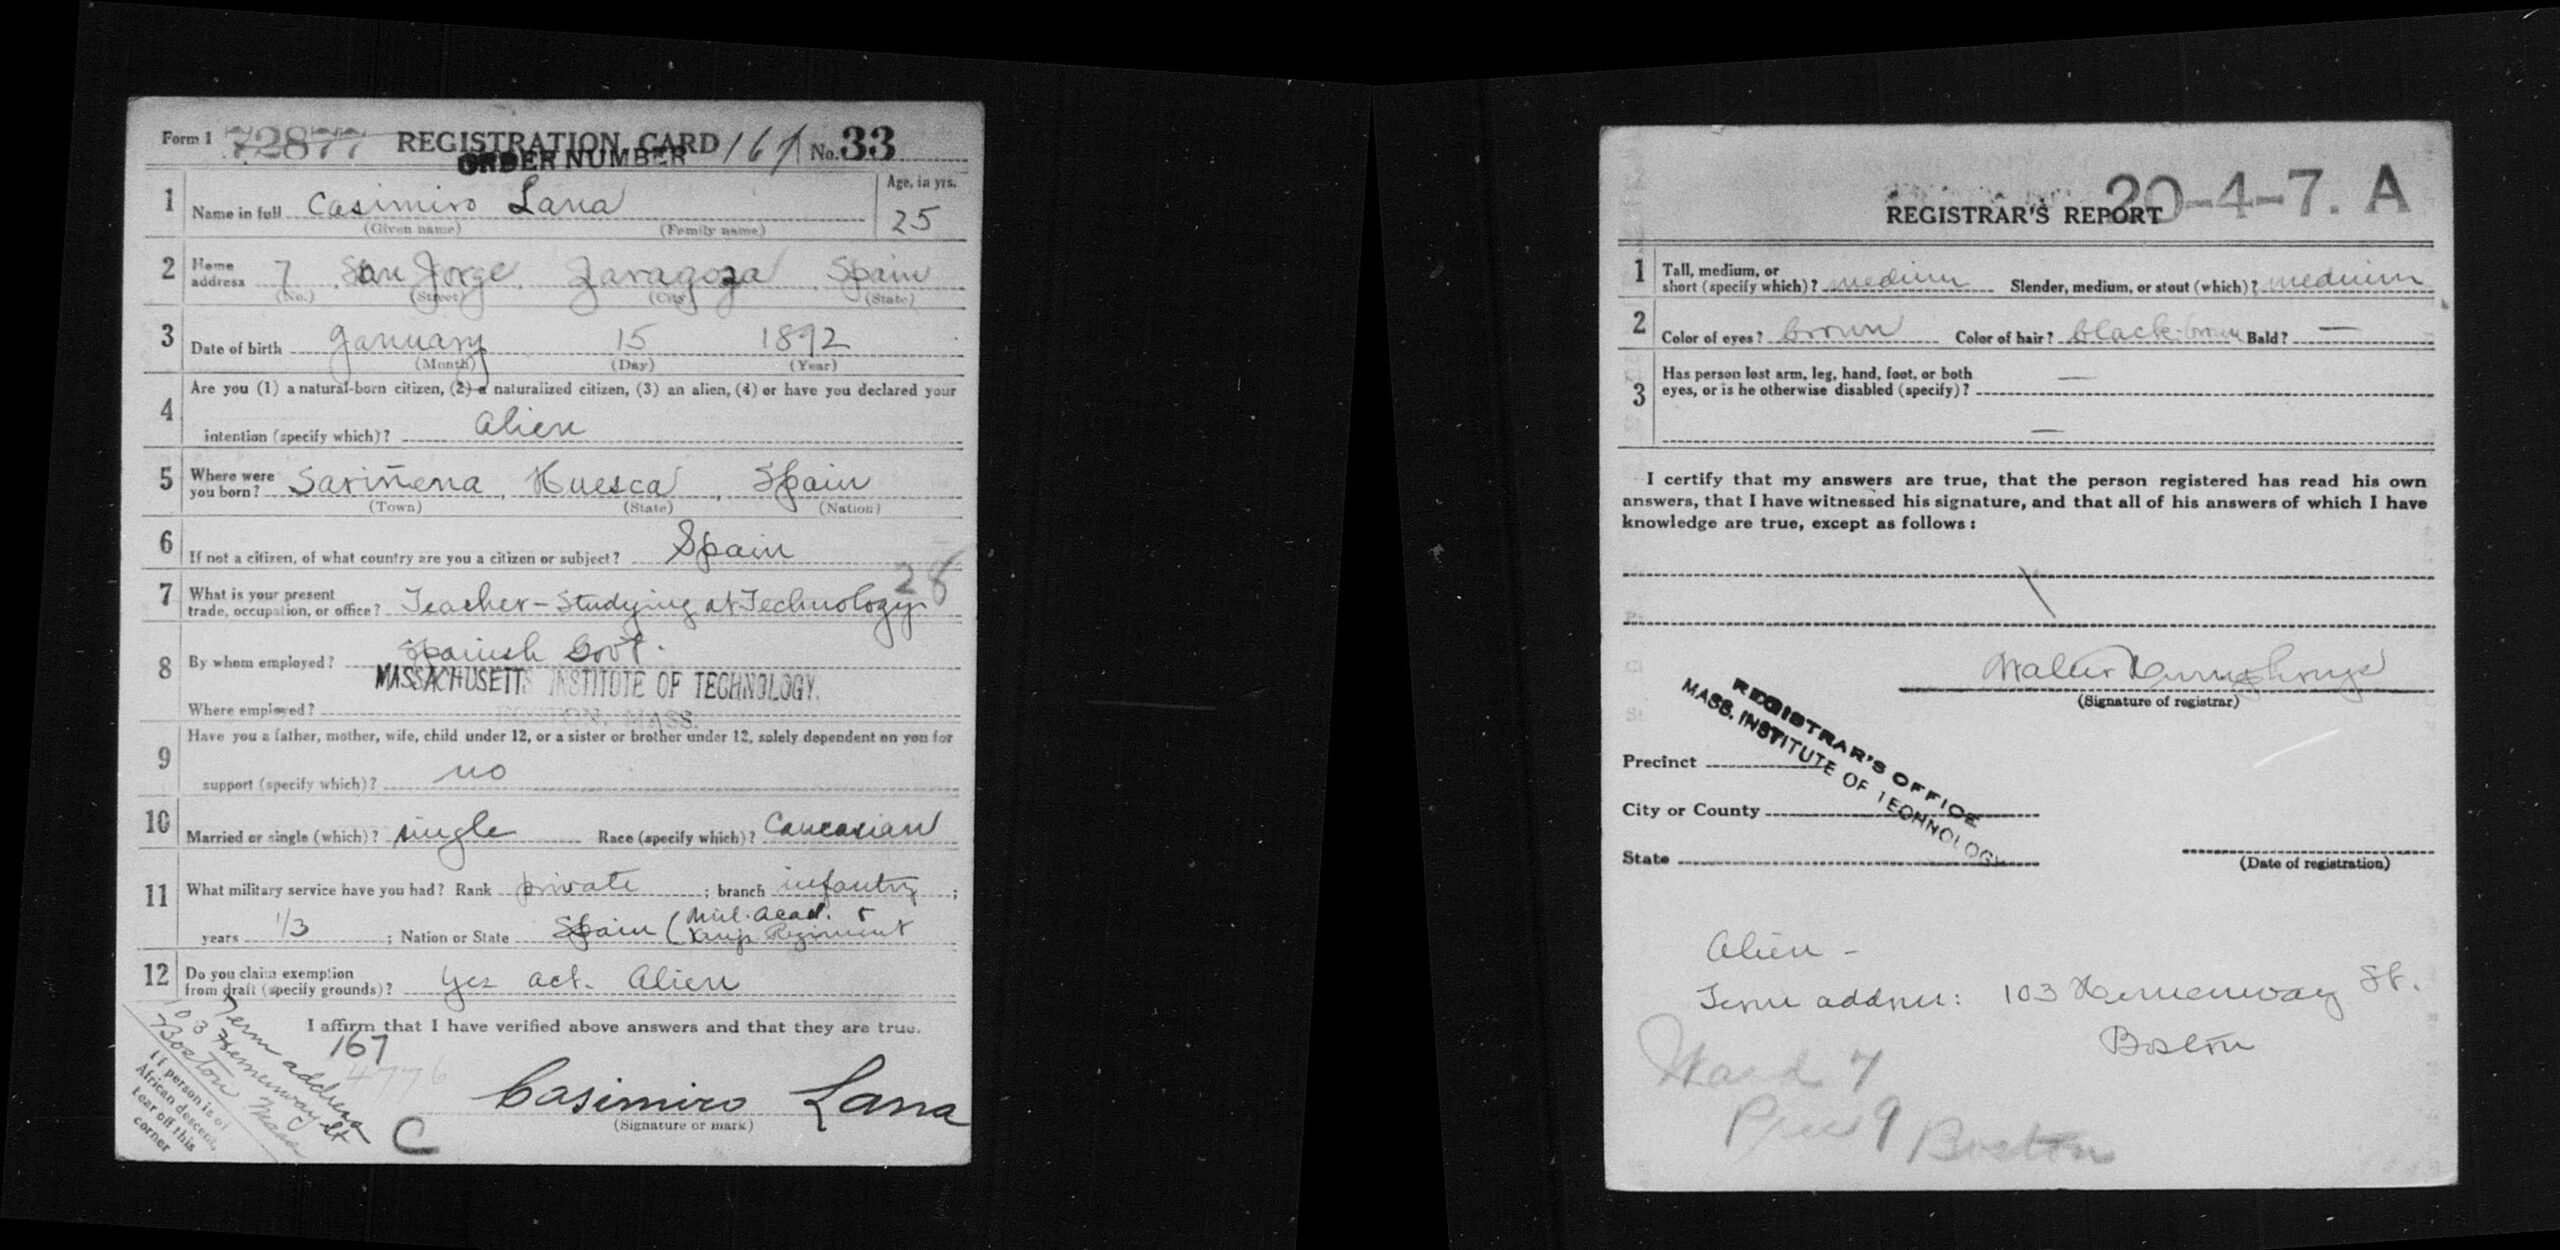 Form 1 72877 REGISTRATION CARD 167 No. 33
ORDER NUMBER
1 Name in full Casimiro Lana Age, in yrs. 25
(Given name) (Family name)
2 Home address 7 San Jorge, Zaragoza, Spain
(No.) (Street) (City) (State)
3 Date of birth January 15 1892
(Month) (Day) (Year)
4 Are you (1) a natural-born citizen, (2) a naturalized citizen, (3) an alien, (4) or have you declared your
intention (specify which)? Alien
5 Where were you born? Sariñena, Huesca, Spain
(Town) (State) (Nation)
6 If not a citizen, of what country are you a citizen or subject? Spain
28
7 What is your present
trade, occupation, or office? Teacher - Studying at Technology
8 By whom employed? Spanish Govt.
MASSACHUSETTS INSTITUTE OF TECHNOLOGY.
Where employed? BOSTON, MASS.
9 Have you a father, mother, wife, child under 12, or a sister or brother under 12, solely dependent on you for
support (specify which)? no
10 Married or single (which)? single Race (specify which)? Caucasian
11 What military service have you had? Rank private ; branch infantry ;
years 1/3 ; Nation or State Spain (Mil. Acad. &
Regiment
12 Do you claim exemption
from draft (specify grounds)? Yes act. Alien
I affirm that I have verified above answers and that they are true.
167
4776
C Casimiro Lana
(Signature or mark)
Term address
103 Hemenway St
Boston Mass
If person is of
African descent,
tear off this
corner
20-4-7. A
REGISTRAR'S REPORT
1 Tall, medium, or
short (specify which)? medium Slender, medium, or stout (which)? medium
2 Color of eyes? brown Color of hair? black-brown Bald? —
3 Has person lost arm, leg, hand, foot, or both
eyes, or is he otherwise disabled (specify)? —
—
I certify that my answers are true, that the person registered has read his own
answers, that I have witnessed his signature, and that all of his answers of which I have
knowledge are true, except as follows:
Walter Humphreys
(Signature of registrar)
REGISTRAR'S OFFICE
MASS. INSTITUTE OF TECHNOLOGY
Precinct
City or County
State
(Date of registration)
Alien -
Term address: 103 Hemenway St.
Boston
Ward 7
Prec 9 Boston